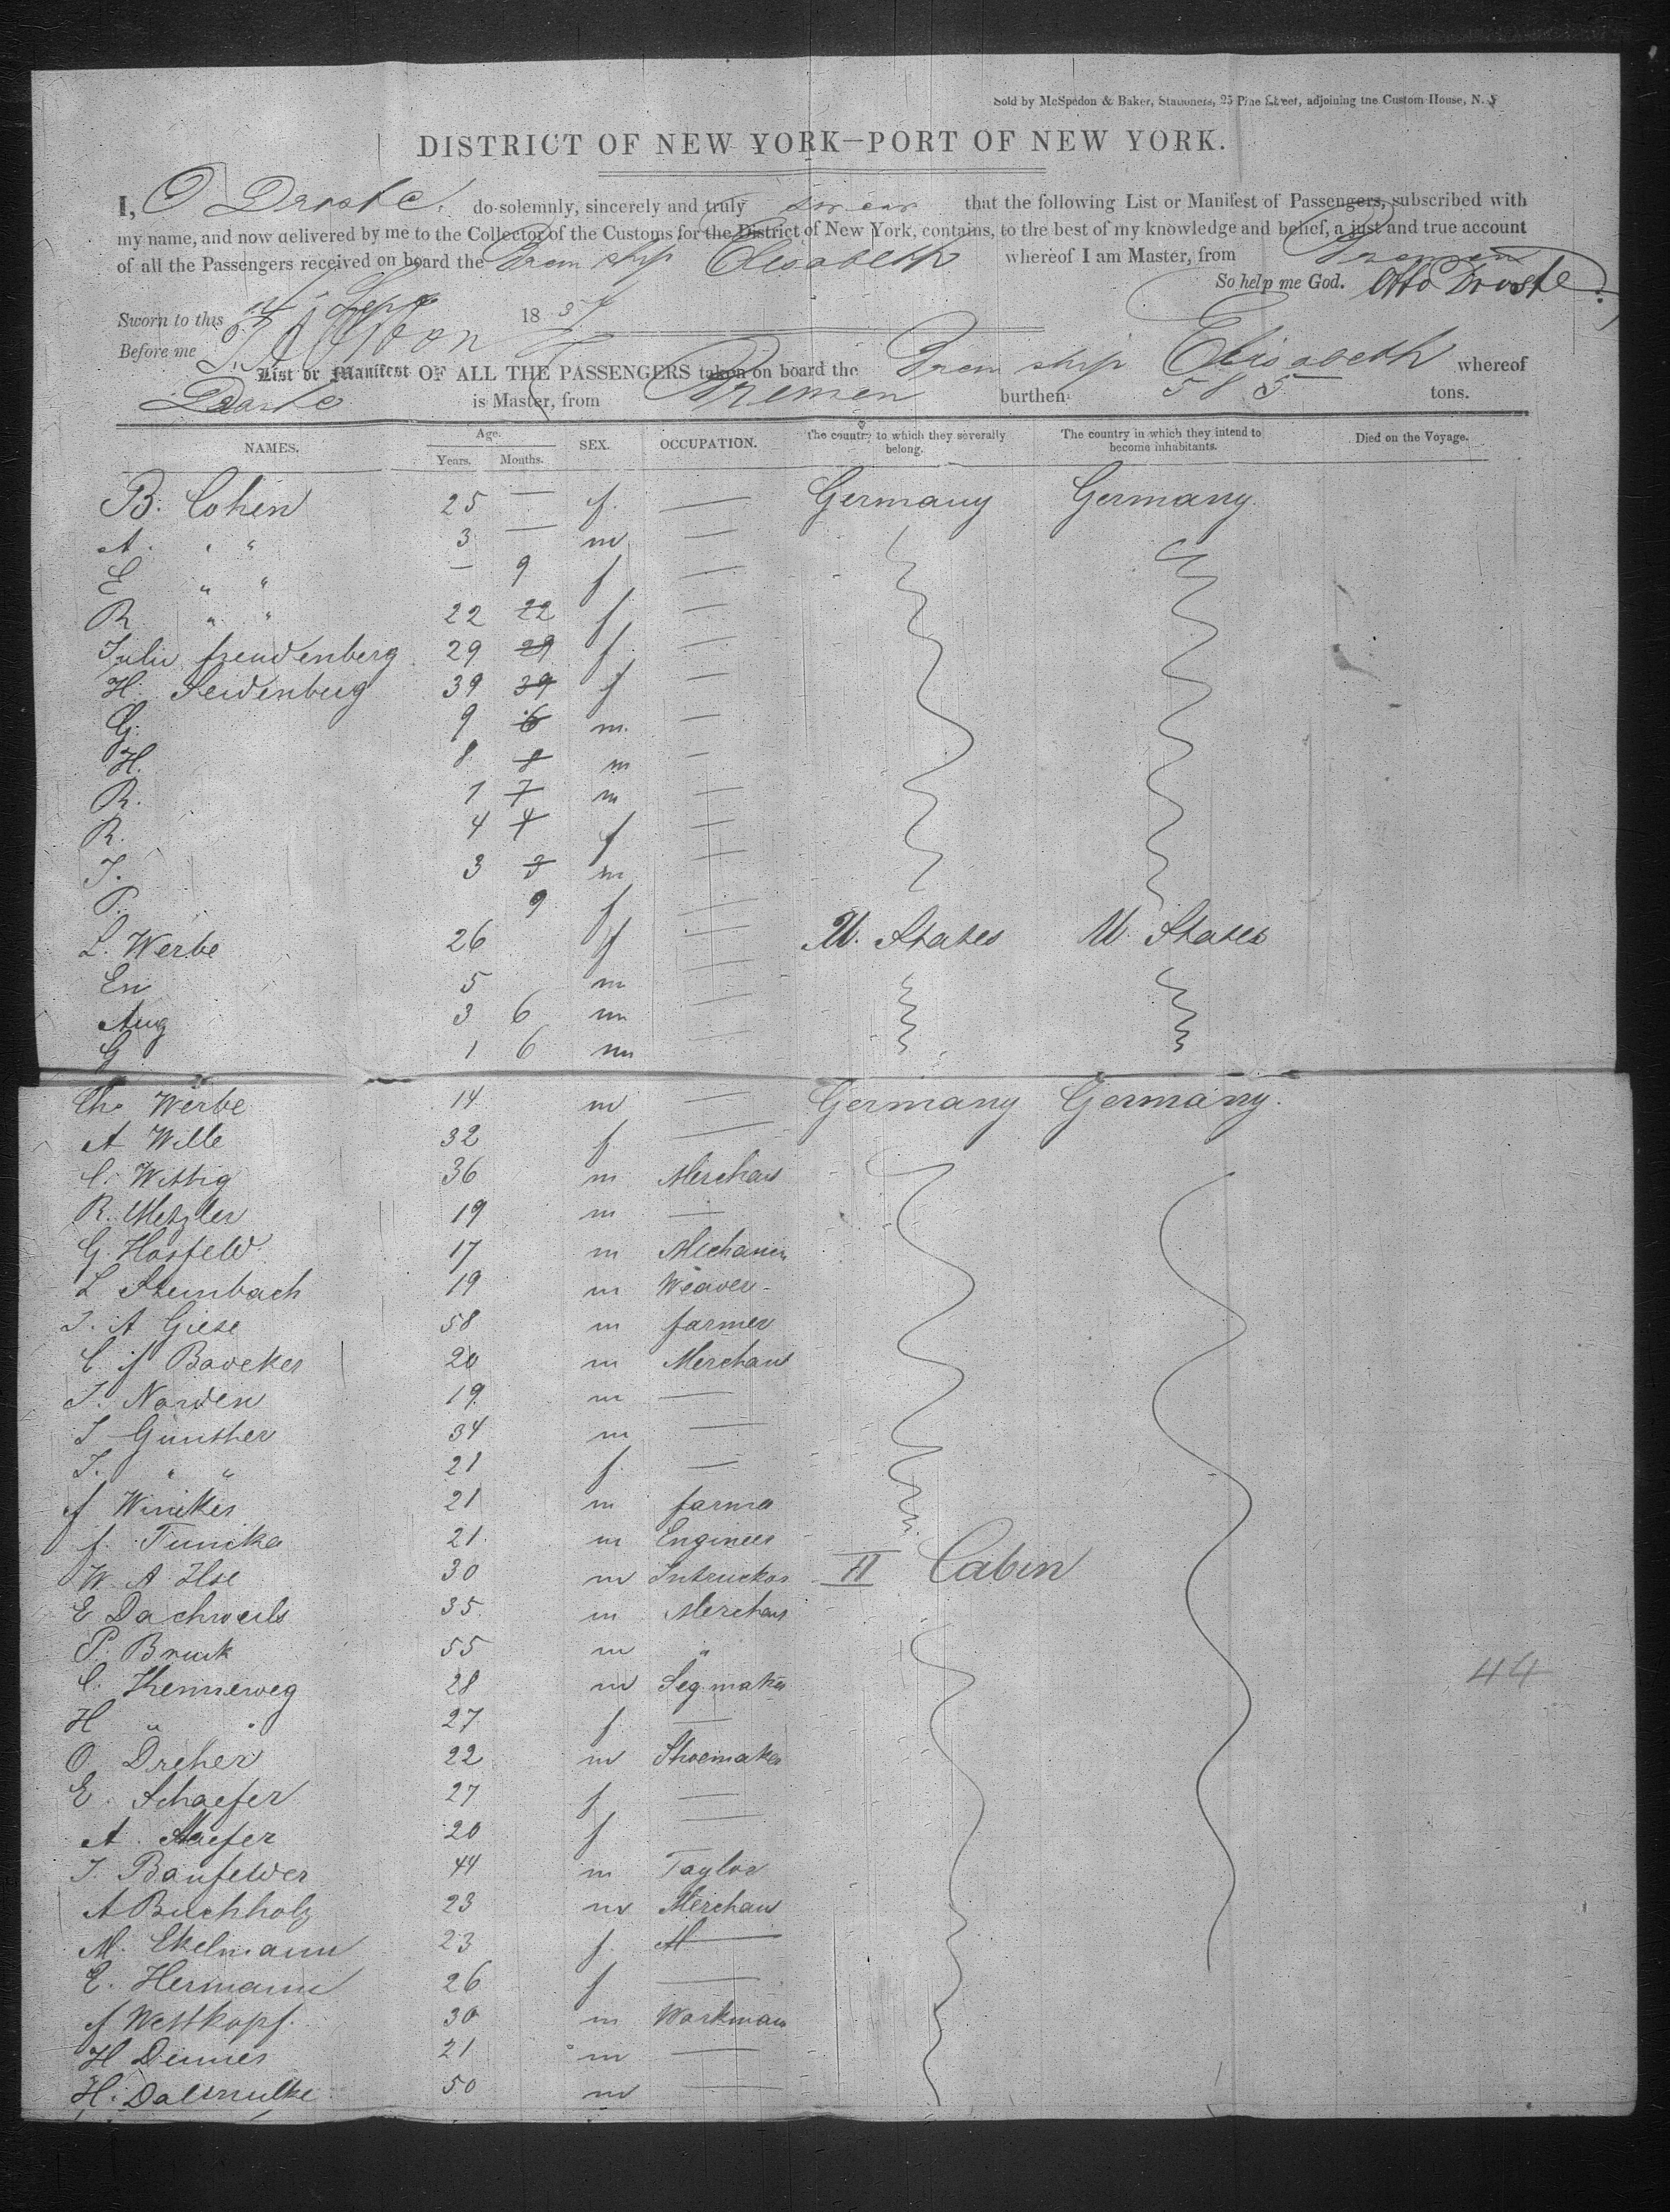 Sold by McSpedon & Baker, Stationers, 25 Pine Street, adjoining the Custom-House, N. Y
DISTRICT OF NEW YORK—PORT OF NEW YORK.
I, O Droste do solemnly, sincerely and truly swear that the following List or Manifest of Passengers, subscribed with
my name, and now delivered by me to the Collector of the Customs for the District of New York, contains, to the best of my knowledge and belief, a just and true account
of all the Passengers received on board the Brem ship Elisabeth whereof I am Master, from Bremen
So help me God. Otto Droste
Sworn to this Sept 1857
Before me
List or Manifest OF ALL THE PASSENGERS taken on board the Brem ship Elisabeth whereof
Droste is Master, from Bremen burthen 585 tons.
NAMES. Age. Years. Months. SEX. OCCUPATION. The country to which they severally belong. The country in which they intend to become inhabitants. Died on the Voyage.
B. Cohen 25 — f. — Germany Germany.
A. " " 3 — m —
E " " — 9 f —
R " " 22 22 f —
Julie freudenberg 29 29 f —
H. Seidenberg 39 39 f —
G. 9 6 m. —
H. 8 8 m —
R. 7 7 m —
R. 4 4 f —
J. 3 3 m —
P. 9 f —
L. Werbe 26 f — U. States U. States
En 5 m —
Aug 3 6 m —
G 1 6 m —
Chr Werbe 14 m — Germany Germany.
A Wille 32 f —
C. Wittig 36 m Merchant
R. Metzler 19 m —
G. Hosfeld 17 m Mechanic
L Steinbach 19 m Weaver
J. A Giese 58 m farmer
C. f Baveker 20 m Merchant
J. Norden 19 m —
J Günther 34 m —
J. " " 21 f. —
f Wincker 21 m farmer
f. Tunika 21 m Engineer
W. A Ilse 30 m Intructor II Cabin
E Dachweils 35 m Merchant
P. Bruck 55 m "
C. Henneweg 28 m Segmaker 44
H " " 27 f. —
O. Dreher 22 m Shoemaker
E. Schaefer 27 f —
A. Staefer 20 f —
J. Baufelder 44 m Taylor
A Buchholz 23 m Merchant
M. Ekelmann 23 f. —
E. Hermann 26 f —
f Wettkopf. 30 m Workman
H Dennes 21 m —
H. Dalsmulke 50 m —